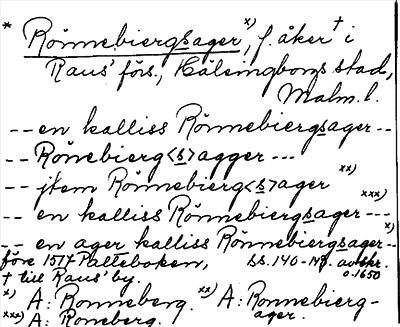 * Rönnebiergsager x), f. åker † i
Raus förs., Hälsingborgs stad,
Malm. l.
-- en kalliss Rönnebiergsager --
-- Rönebierg<s>agger ---
-- jtem Rönnebierg<s>ager xx)
-- en kalliss Rönnebiergsager --- xxx)
-- en ager kalliss Rönnebiergsager -- x)
före 1517 Palteboken, ss. 140- avskr.
† till Raus by. o. 1650
x) A: Ronneberg. xx) A: Ronnebierg-
xxx) A: Roneberg. ager.